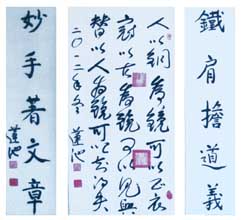 鐵肩擔道義
人以銅為鏡可以正衣
冠以古為鏡可以見興
替以人為鏡可以知得失
二〇一二年冬 蓮池
妙手著文章
蓮池